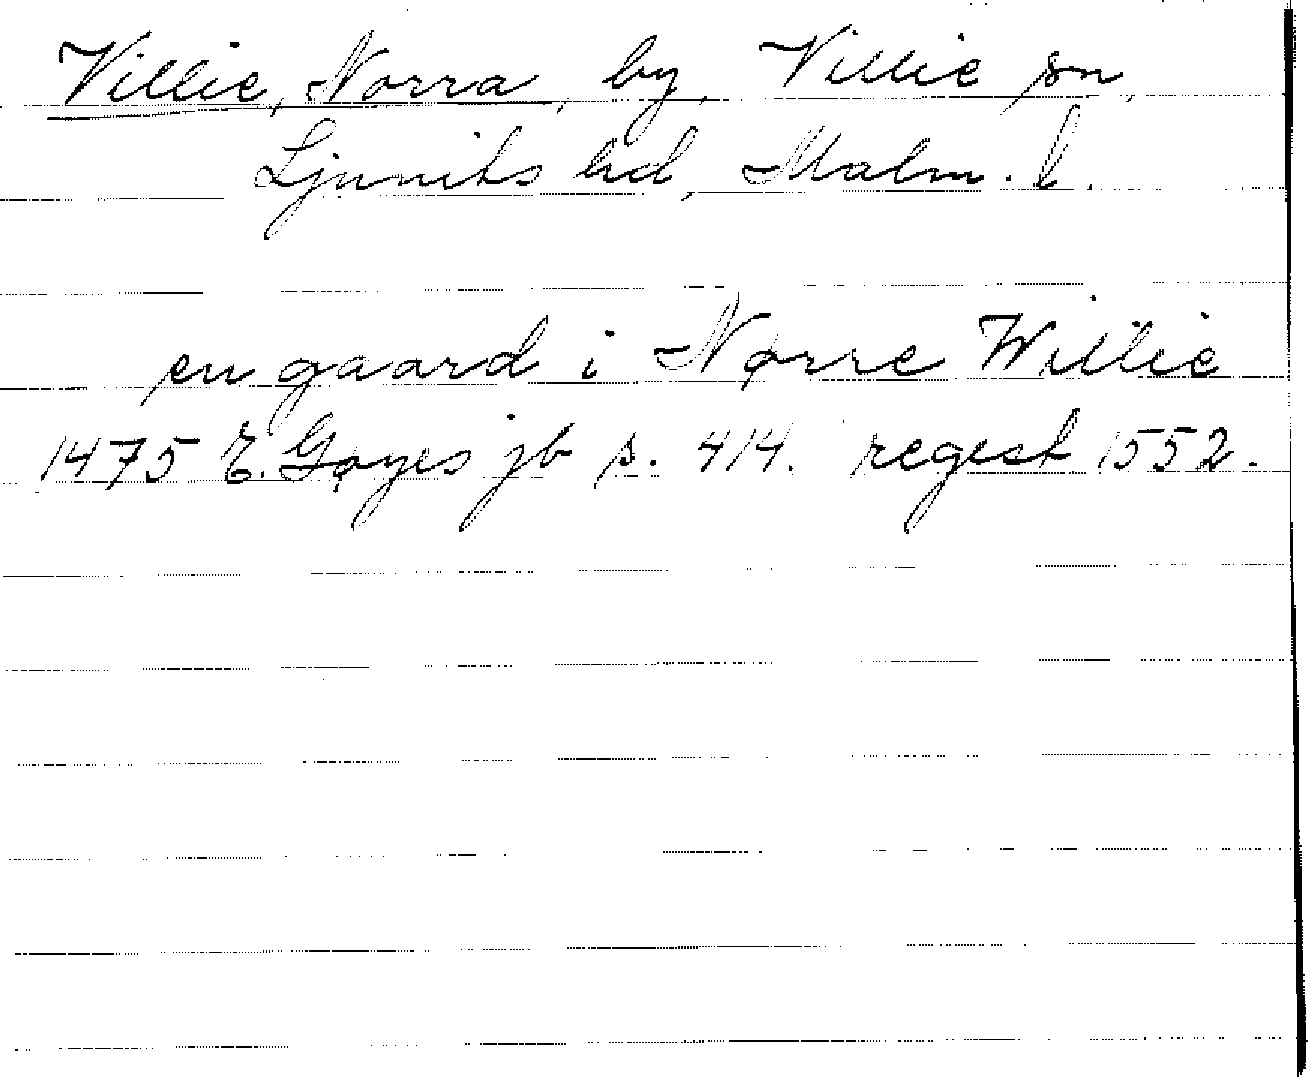 Villie, Norra, by, Villie sn,
Ljunits hd, Malm. l.
en gaard i Nørre Willie
1475 E. Gøyes jb s. 414. regest 1552.